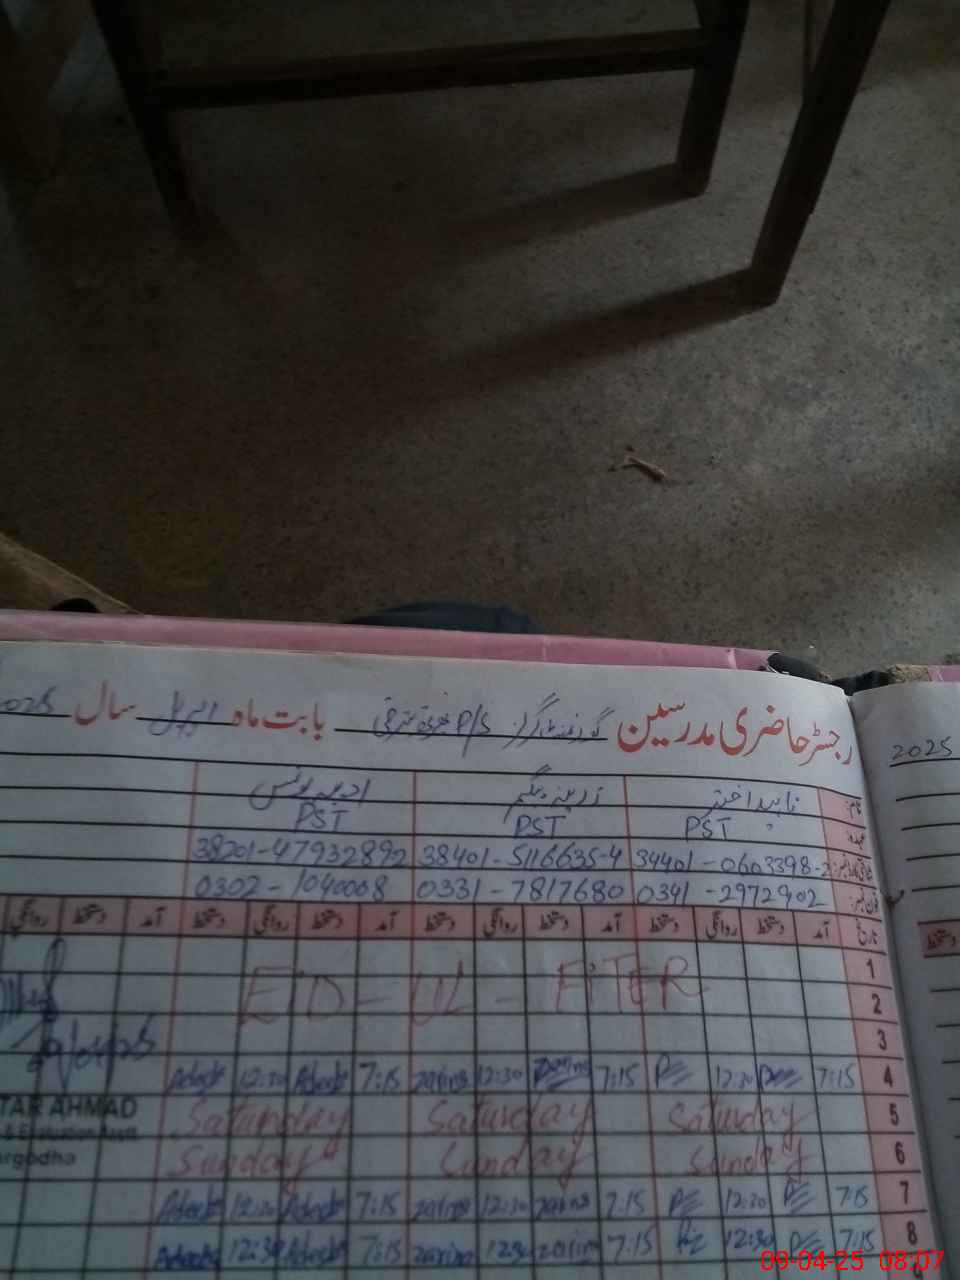 رجسٹر حاضری مدرسین گورنمنٹ گرلز P/S بابت ماہ اپریل سال 2025
2025
نام: ناہید اختر زرینہ بیگم ادیبہ یونس
عہدہ: PST PST PST
شناختی کارڈ نمبر: 34401-0603398-2 38401-5116635-4 38201-47932892
فون نمبر: 0341-2972902 0331-7817680 0302-1040008
تاریخ آمد دستخط روانگی دستخط آمد دستخط روانگی دستخط آمد دستخط روانگی دستخط آمد دستخط روانگی
دستخط
1
EID-UL-FITER
2
3
4 7:15 12:30 7:15 Zarina 12:30 Zarina 7:15 Adeeba 12:30 Adeeba
5 Saturday Saturday Saturday
6 Sunday Sunday Sunday
7 7:15 12:30 7:15 Zarina 12:30 Zarina 7:15 Adeeba 12:30 Adeeba
8 7:15 12:30 7:15 Zarina 12:30 Zarina 7:15 Adeeba 12:30 Adeeba
/04/25
TAR AHMAD
argodha
09-04-25 08:07